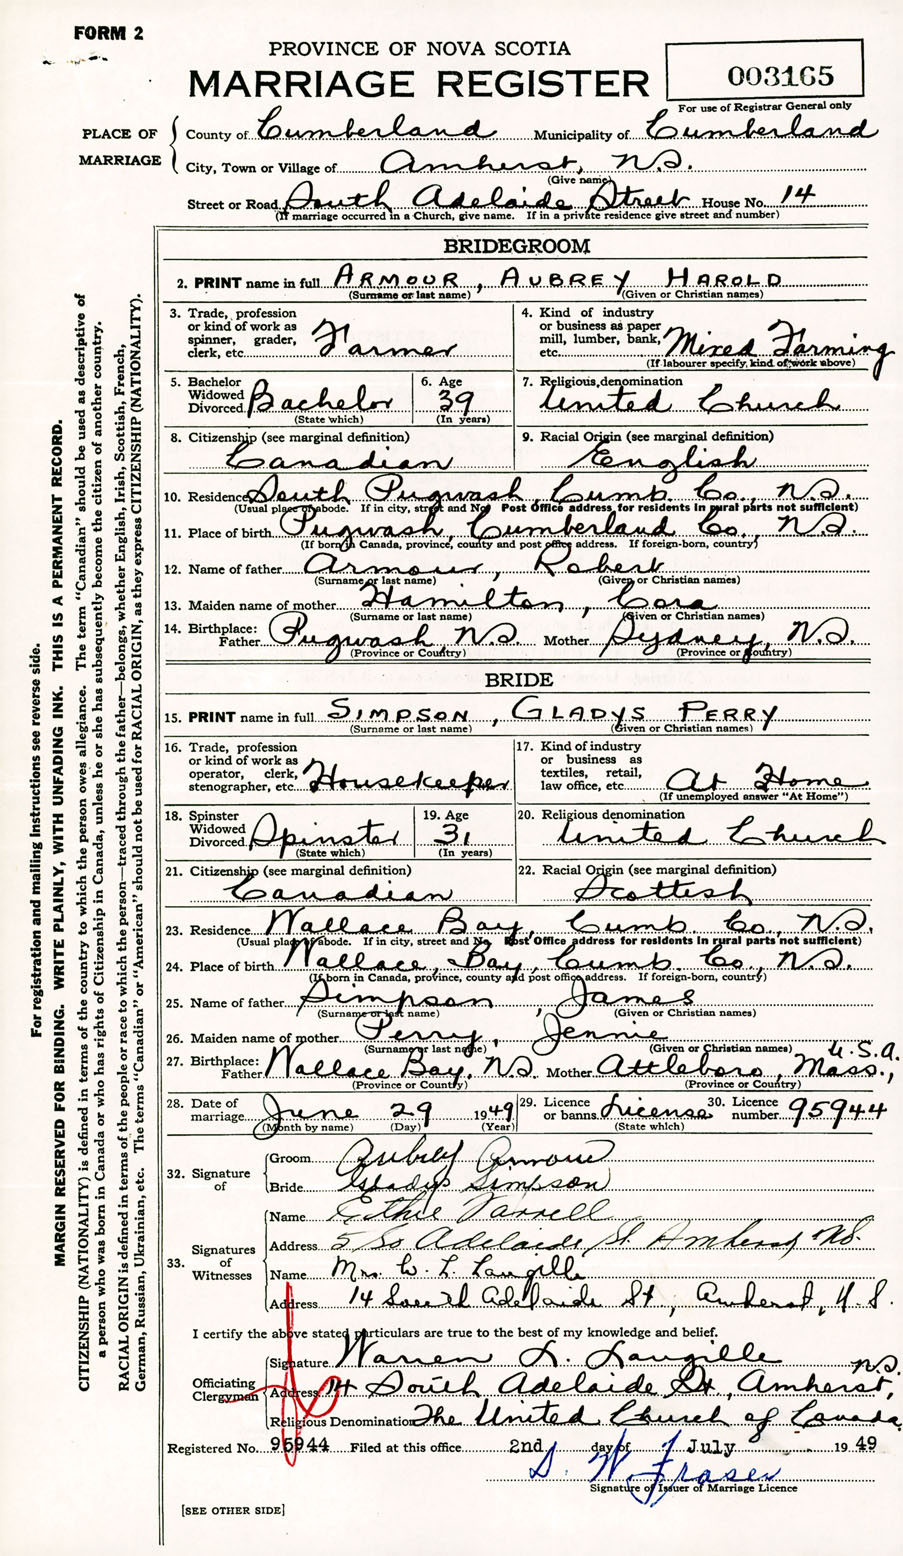 FORM 2
PROVINCE OF NOVA SCOTIA
MARRIAGE REGISTER
003165
For use of Registrar General only
PLACE OF MARRIAGE
County of Cumberland Municipality of Cumberland
City, Town or Village of Amherst, N.S.
(Give name)
Street or Road South Adelaide Street House No. 14
(If marriage occurred in a Church, give name. If in a private residence give street and number)
BRIDEGROOM
2. PRINT name in full ARMOUR, AUBREY HAROLD
(Surname or last name) (Given or Christian names)
3. Trade, profession or kind of work as spinner, grader, clerk, etc. Farmer
4. Kind of industry or business as paper mill, lumber, bank, etc. Mixed Farming
(If labourer specify kind of work above)
5. Bachelor Widowed Divorced Bachelor
(State which)
6. Age 39
(In years)
7. Religious denomination United Church
8. Citizenship (see marginal definition) Canadian
9. Racial Origin (see marginal definition) English
10. Residence South Pugwash, Cumb. Co., N.S.
(Usual place of abode. If in city, street and No. Post Office address for residents in rural parts not sufficient)
11. Place of birth Pugwash, Cumberland Co., N.S.
(If born in Canada, province, county and post office address. If foreign-born, country)
12. Name of father Armour, Robert
(Surname or last name) (Given or Christian names)
13. Maiden name of mother Hamilton, Cora
(Surname or last name) (Given or Christian names)
14. Birthplace: Father Pugwash, N.S. Mother Sydney, N.S.
(Province or Country) (Province or Country)
BRIDE
15. PRINT name in full SIMPSON, GLADYS PERRY
(Surname or last name) (Given or Christian names)
16. Trade, profession or kind of work as operator, clerk, stenographer, etc. Housekeeper
17. Kind of industry or business as textiles, retail, law office, etc. At Home
(If unemployed answer "At Home")
18. Spinster Widowed Divorced Spinster
(State which)
19. Age 31
(In years)
20. Religious denomination United Church
21. Citizenship (see marginal definition) Canadian
22. Racial Origin (see marginal definition) Scottish
23. Residence Wallace Bay, Cumb. Co., N.S.
(Usual place of abode. If in city, street and No. Post Office address for residents in rural parts not sufficient)
24. Place of birth Wallace Bay, Cumb. Co., N.S.
(If born in Canada, province, county and post office address. If foreign-born, country)
25. Name of father Simpson, James
(Surname or last name) (Given or Christian names)
26. Maiden name of mother Perry, Jennie
(Surname or last name) (Given or Christian names)
27. Birthplace: Father Wallace Bay, N.S. Mother Attleboro, Mass., U.S.A.
(Province or Country) (Province or Country)
28. Date of marriage June 29 1949
(Month by name) (Day) (Year)
29. Licence or banns License
(State which)
30. Licence number 95944
32. Signature of
Groom Aubrey Armour
Bride Gladys Simpson
33. Signatures of Witnesses
Name
Address Adelaide St. Amherst, NS.
Name Mrs. W. L. Langille
Address 14 South Adelaide St, Amherst, N.S.
I certify the above stated particulars are true to the best of my knowledge and belief.
Officiating Clergyman
Signature Warren L. Langille
Address 14 South Adelaide St., Amherst, N.S.
Religious Denomination The United Church of Canada
Registered No. 95944 Filed at this office 2nd day of July 1949
S. W. Fraser
Signature of Issuer of Marriage Licence
[SEE OTHER SIDE]
For registration and mailing instructions see reverse side.
MARGIN RESERVED FOR BINDING. WRITE PLAINLY, WITH UNFADING INK. THIS IS A PERMANENT RECORD.
CITIZENSHIP (NATIONALITY) is defined in terms of the country to which the person owes allegiance. The term "Canadian" should be used as descriptive of
a person who was born in Canada or who has rights of Citizenship in Canada, unless he or she has subsequently become the citizen of another country.
RACIAL ORIGIN is defined in terms of the people or race to which the person—traced through the father—belongs, whether English, Irish, Scottish, French,
German, Russian, Ukrainian, etc. The terms "Canadian" or "American" should not be used for RACIAL ORIGIN, as they express CITIZENSHIP (NATIONALITY).